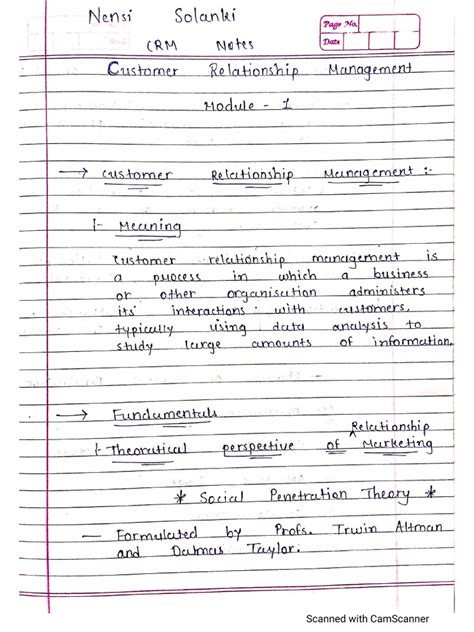 Nensi Solanki
CRM Notes
Page No.
Date
Customer Relationship Management
Module - 1
→ Customer Relationship Management :-
1- Meaning
Customer relationship management is
a process in which a business
or other organisation administers
its' interactions with customers,
typically using data analysis to
study large amounts of information.
→ Fundamentals
1- Theoratical perspective of Relationship Marketing
* Social Penetration Theory *
— Formulated by Profs. Irwin Altman
and Dalmas Taylor.
Scanned with CamScanner